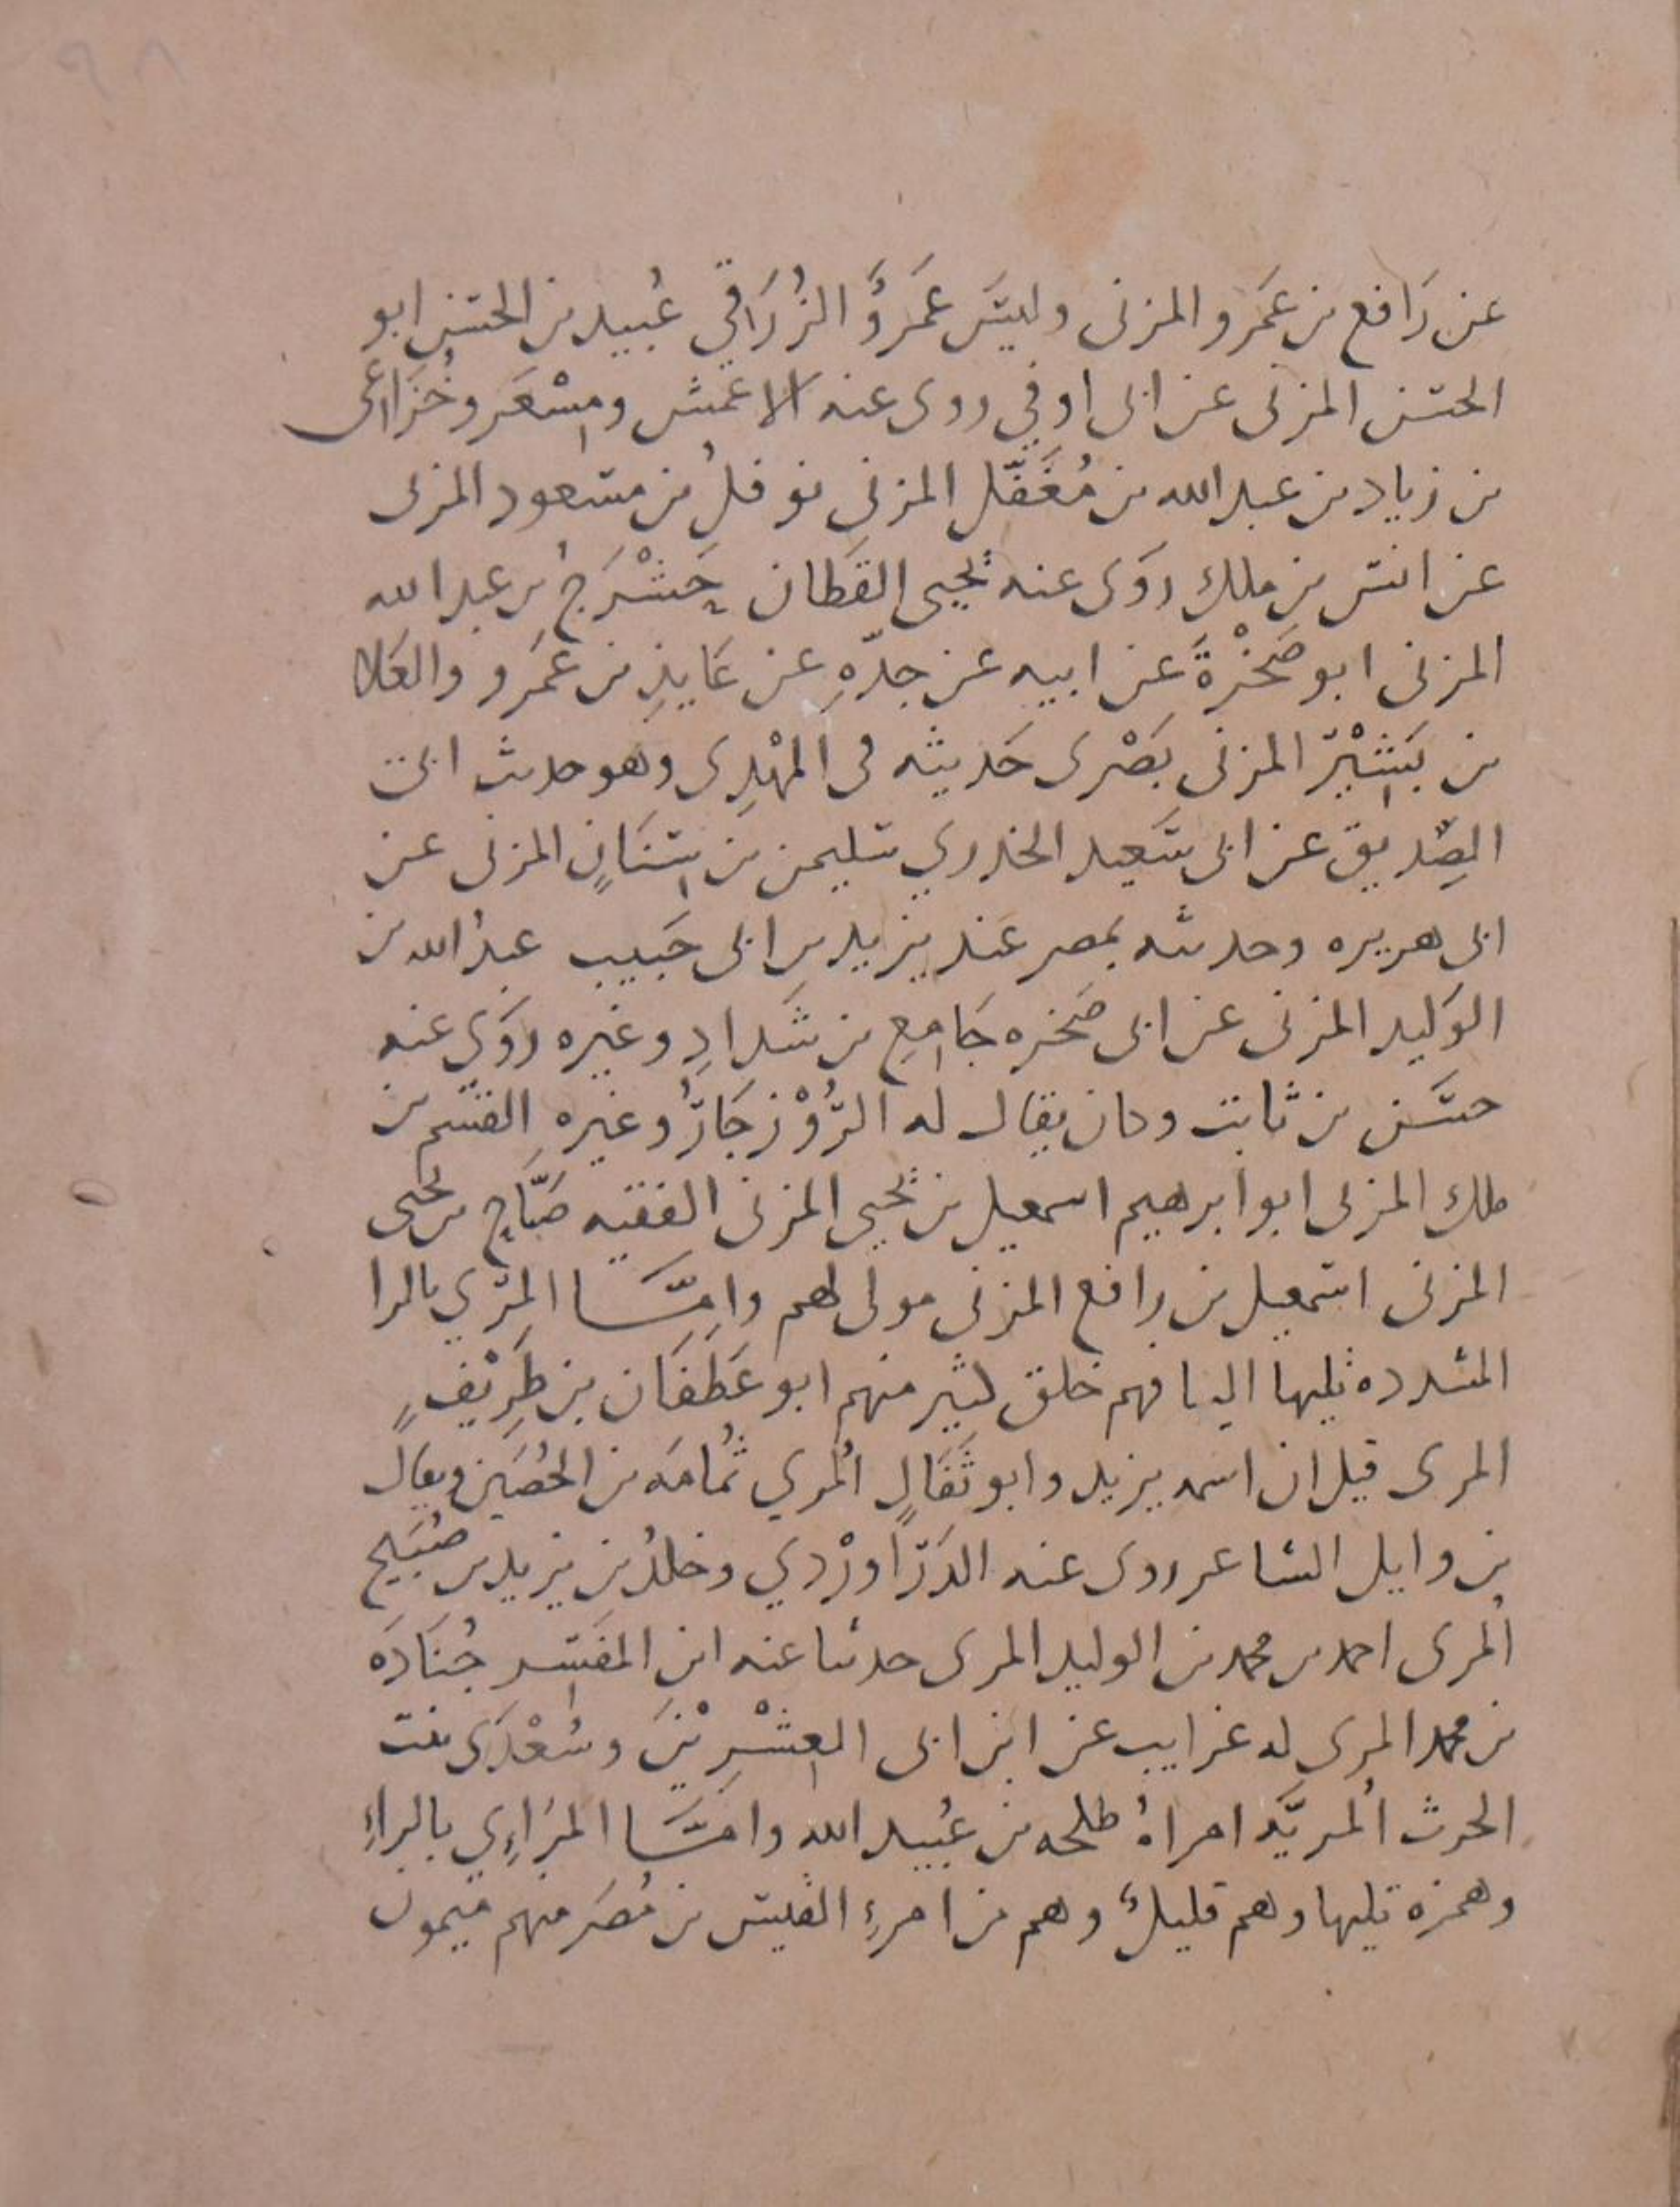 ٩٨
عن رَافع بن عَمرو المزنى وليسَ عَمرَوَ الزُرَاقي عُبيد بن الحسَنِ ابو
الحسن المزنى عن ابى اوفي روى عنه الاعمش ومِسْعَر وخُزَاعى
بن زياد بن عبد الله بن مُغَفَّل المزنىِ نوفلُ بن مسعود المزنى
عن انس بن ملك روَى عنه يحيى القَطان حَشْرَجُ بن عبد الله
المزنى ابو صَخْرَةَ عن ابيه عن جدّهِ عن عَايذِ بن عَمرو والعَلا
بن بَشِيْر المزنى بَصْرى حَديثه فى المهْدِى وهو حديث ابى
الصِّديق عن ابى سَعيد الخدري سليمن بن سِنَانٍ المزنى عن
ابى هريره وحديثه بمصر عَند يزيد بن ابى حَبيب عبدُ الله بن
الوَليد المزنى عن ابى صَخره جَامِعِ بن شَدادِ وغيره روَى عنه
حسَن بن ثابت وكان يقال له الرُّوْزجَارُ وغيره القسَم بن
ملك المزنى ابو ابرهيم اسمعيل بن يحيى المزنى الفقيه صَبَّاح بن يحيى
المزنى اسمعيل بن رافع المزنى مولى لهم وامَّــا المرّي بالرا
المشدده تليها اليا فهم خلق كثير منهم ابو غَطَفَان بن طَرِيْفٍ
المرى قيل ان اسمه يزيد وابو ثَفَالٍ المُري ثُمامَه بن الحُصَين ويقال
بن وايل الشاعر روى عنه الدَرَاوَرْدي وخلدُ بن يزيد بن صُبَيح
المُرى احمد بن محمد بن الوليد المرى حدثنا عنه ابن المفَسِر جُنَادَه
بن محمد المرى له غرايب عن ابن ابى العِشْرِيْنَ وسُعْدَى بنت
الحرث المُريَّه امراهُ طلحه بن عُبيد الله وامَّــا المَرَاءِي بالراءِ
وهمزه تليها وهم قليلٌ وهم من امرءِ القيس بن مُضَر منهم ميمون